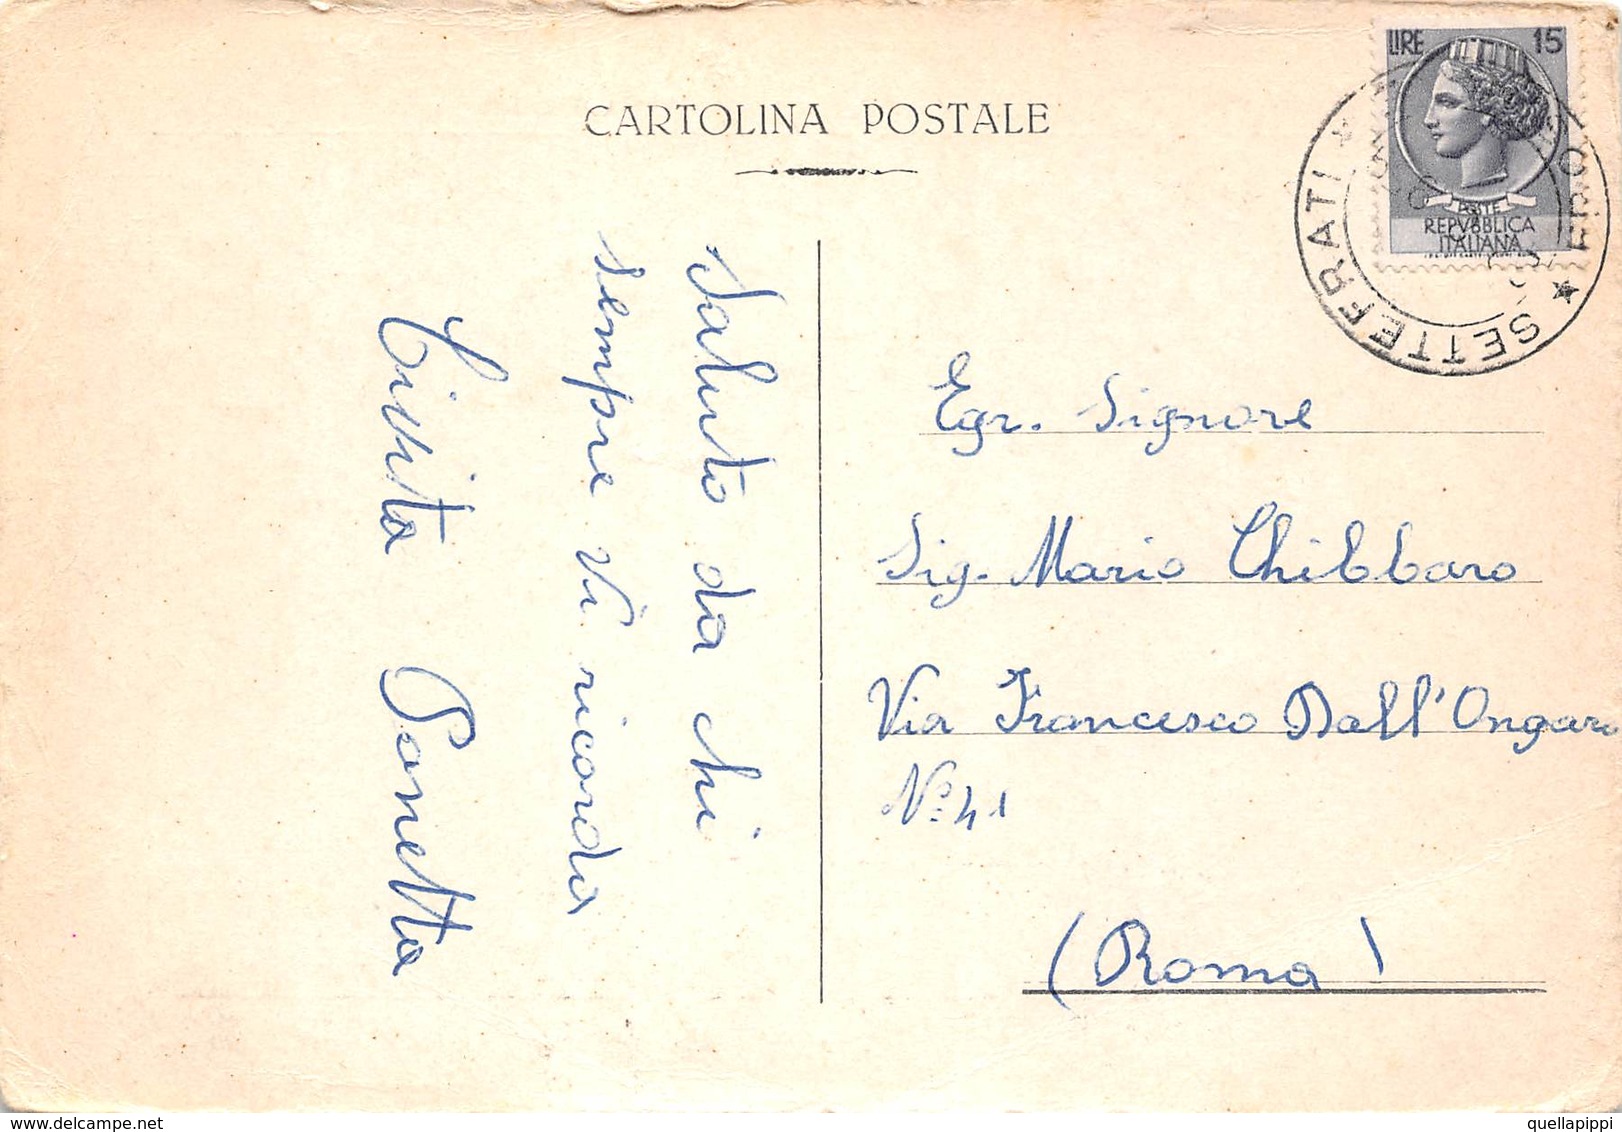 CARTOLINA POSTALE
LIRE 15
POSTE
REPVBBLICA
ITALIANA
SETTEFRATI
Saluto da chi
sempre Vi ricorda
Panetta
Egr. Signore
Sig. Mario Chibbaro
Via Francesco Dall'Ongaro
N° 41
(Roma)
www.delcampe.net
quellapippi